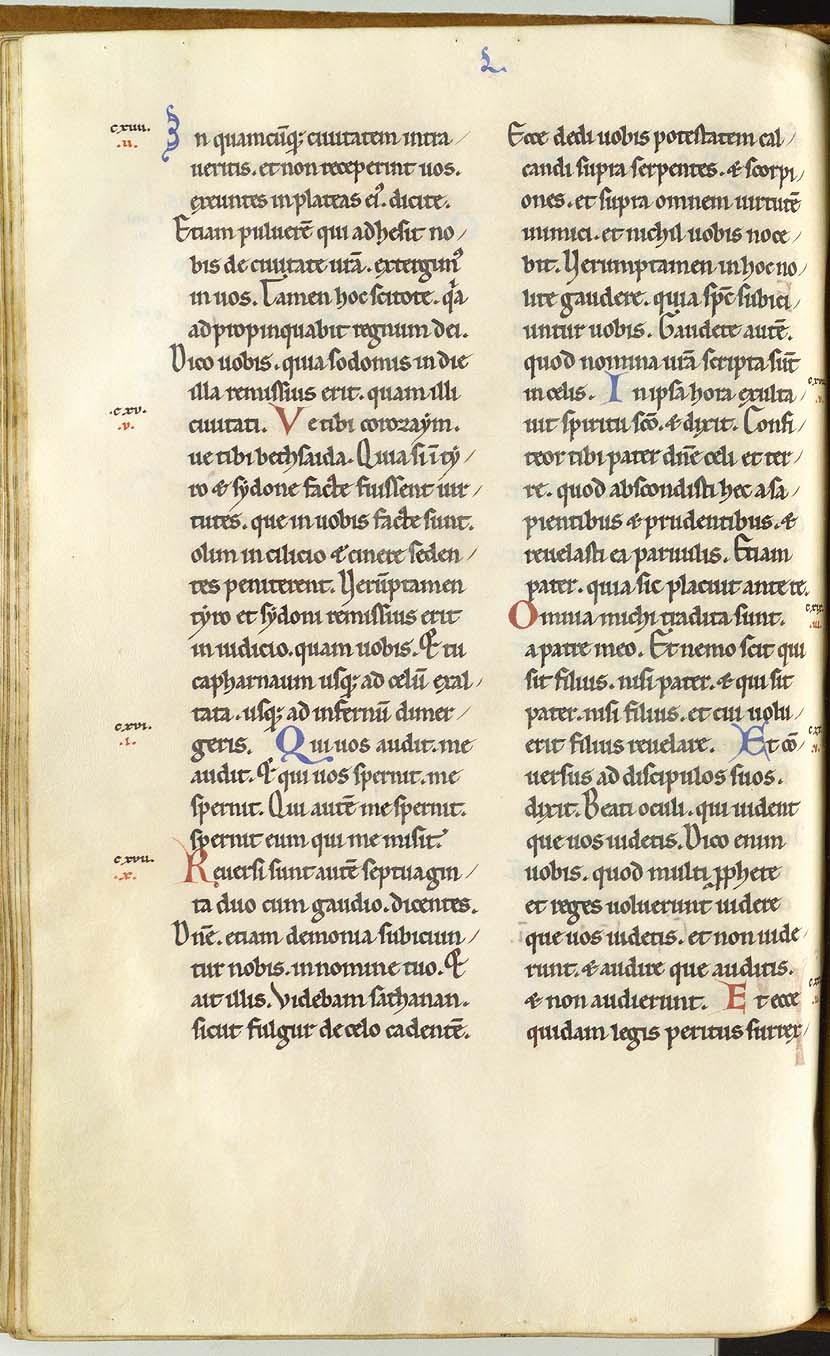 L.
cxiiii.
.ii.
In quamcūq; ciuitatem intra/
ueritis. et non receperint uos.
exeuntes in plateas ei⁹. dicite.
Etiam puluerē qui adhesit no/
bis de ciuitate urā. extergim⁹
in uos. Tamen hoc scitote. qa
adpropinquabit regnum dei.
Dico uobis. quia sodomis in die
illa remissius erit. quam illi
.cxv.
.v.
ciuitati. Ve tibi corozaym.
ue tibi bethsaida. Quia si ī ty/
ro & sydone facte fuissent uir/
tutes. que in uobis facte sunt.
olim in cilicio & cinere seden/
tes peniterent. Uerūptamen
tyro et sydoni remissius erit
in iudicio. quam uobis. Et tu
capharnaum usq; ad celū exal/
tata. usq; ad infernū dimer/
cxvi.
.i.
geris. Qui uos audit. me
audit. Et qui uos spernit. me
spernit. Qui autē me spernit.
spernit eum qui me misit.
cxvii.
.x.
Reuersi sunt autē septuagin/
ta duo cum gaudio. dicentes.
Dn̄e. etiam demonia subiciun/
tur nobis. in nomine tuo. Et
ait illis. Videbam sathanan.
sicut fulgur de celo cadentē.
Ecce dedi uobis potestatem cal/
candi supra serpentes. & scorpi/
ones. et supra omnem uirtutē
inimici. et nichil uobis noce/
bit. Uerumptamen in hoc no/
lite gaudere. quia sp̄c subici/
untur uobis. Gaudete autē.
quod nomina urā scripta sūt
in celis. In ipsa hora exulta/
uit spiritu sc̄o. & dixit. Confi/
teor tibi pater dn̄e celi et ter/
re. quod abscondisti hec a sa/
pientibus & prudentibus. &
reuelasti ea paruulis. Etiam
pater. quia sic placuit ante te.
Omnia michi tradita sunt.
a patre meo. Et nemo scit qui
sit filius. nisi pater. & qui sit
pater. nisi filius. et cui uolu/
erit filius reuelare. Et cō/
uersus ad discipulos suos.
dixit. Beati oculi. qui uident
que uos uidetis. Dico enim
uobis. quod multi ꝓphete
et reges uoluerunt uidere
que uos uidetis. et non uide/
runt. & audire que auditis.
& non audierunt. Et ecce
quidam legis peritus surrex/